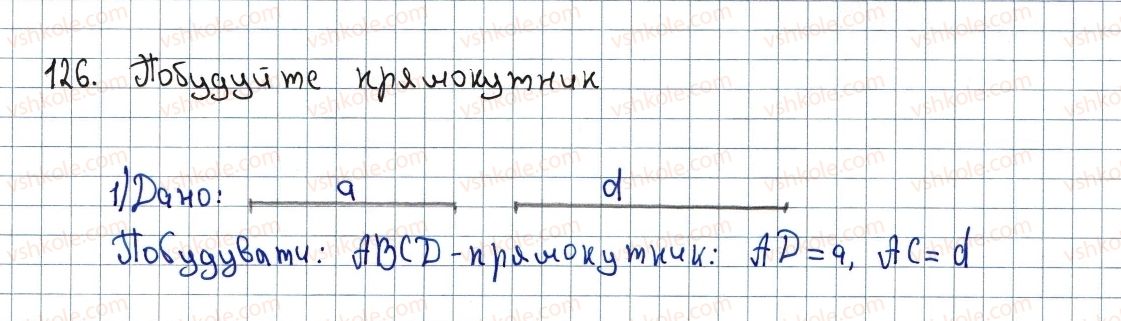 126. Побудуйте прямокутник
1) Дано: a d
Побудувати: ABCD - прямокутник: AD = a, AC = d